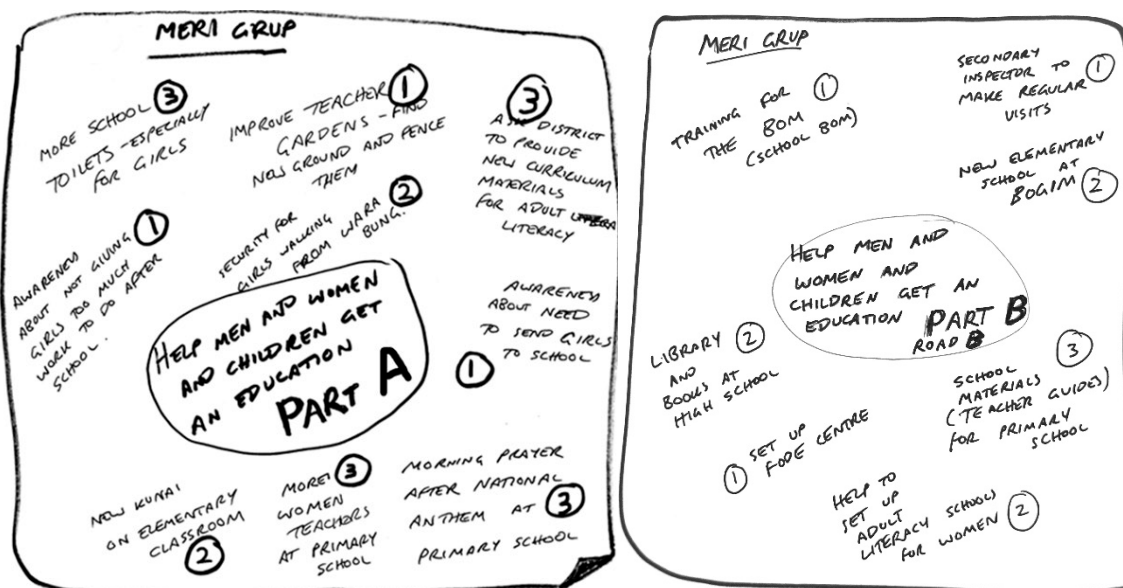 MERI GRUP
MORE SCHOOL 3
TOILETS - ESPECIALLY
FOR GIRLS
IMPROVE TEACHER 1
GARDENS - FIND
NEW GROUND AND FENCE
THEM
3
ASK DISTRICT
TO PROVIDE
NEW CURRICULUM
MATERIALS
FOR ADULT
LITERACY
AWARENESS 1
ABOUT NOT GIVING
GIRLS TOO MUCH
WORK TO DO AFTER
SCHOOL.
SECURITY FOR 2
GIRLS WALKING
FROM WARA
BUNG.
HELP MEN AND WOMEN
AND CHILDREN GET
AN EDUCATION
PART A
AWARENESS
ABOUT NEED
TO SEND GIRLS
TO SCHOOL
1
NEW KUNAI
ON ELEMENTARY
CLASSROOM
2
MORE 3
WOMEN
TEACHERS
AT PRIMARY
SCHOOL
MORNING PRAYER
AFTER NATIONAL
ANTHEM AT 3
PRIMARY SCHOOL
MERI GRUP
TRAINING FOR 1
THE BOM
(SCHOOL BOM)
SECONDARY
INSPECTOR TO 1
MAKE REGULAR
VISITS
NEW ELEMENTARY
SCHOOL AT
BOGIM 2
HELP MEN AND
WOMEN AND
CHILDREN GET AN
EDUCATION PART B
ROAD B
LIBRARY 2
AND
BOOKS AT
HIGH SCHOOL
3
SCHOOL
MATERIALS
(TEACHER GUIDES)
FOR PRIMARY
SCHOOL
1 SET UP
FODE CENTRE
HELP TO
SET UP
ADULT
LITERACY SCHOOL
FOR WOMEN 2